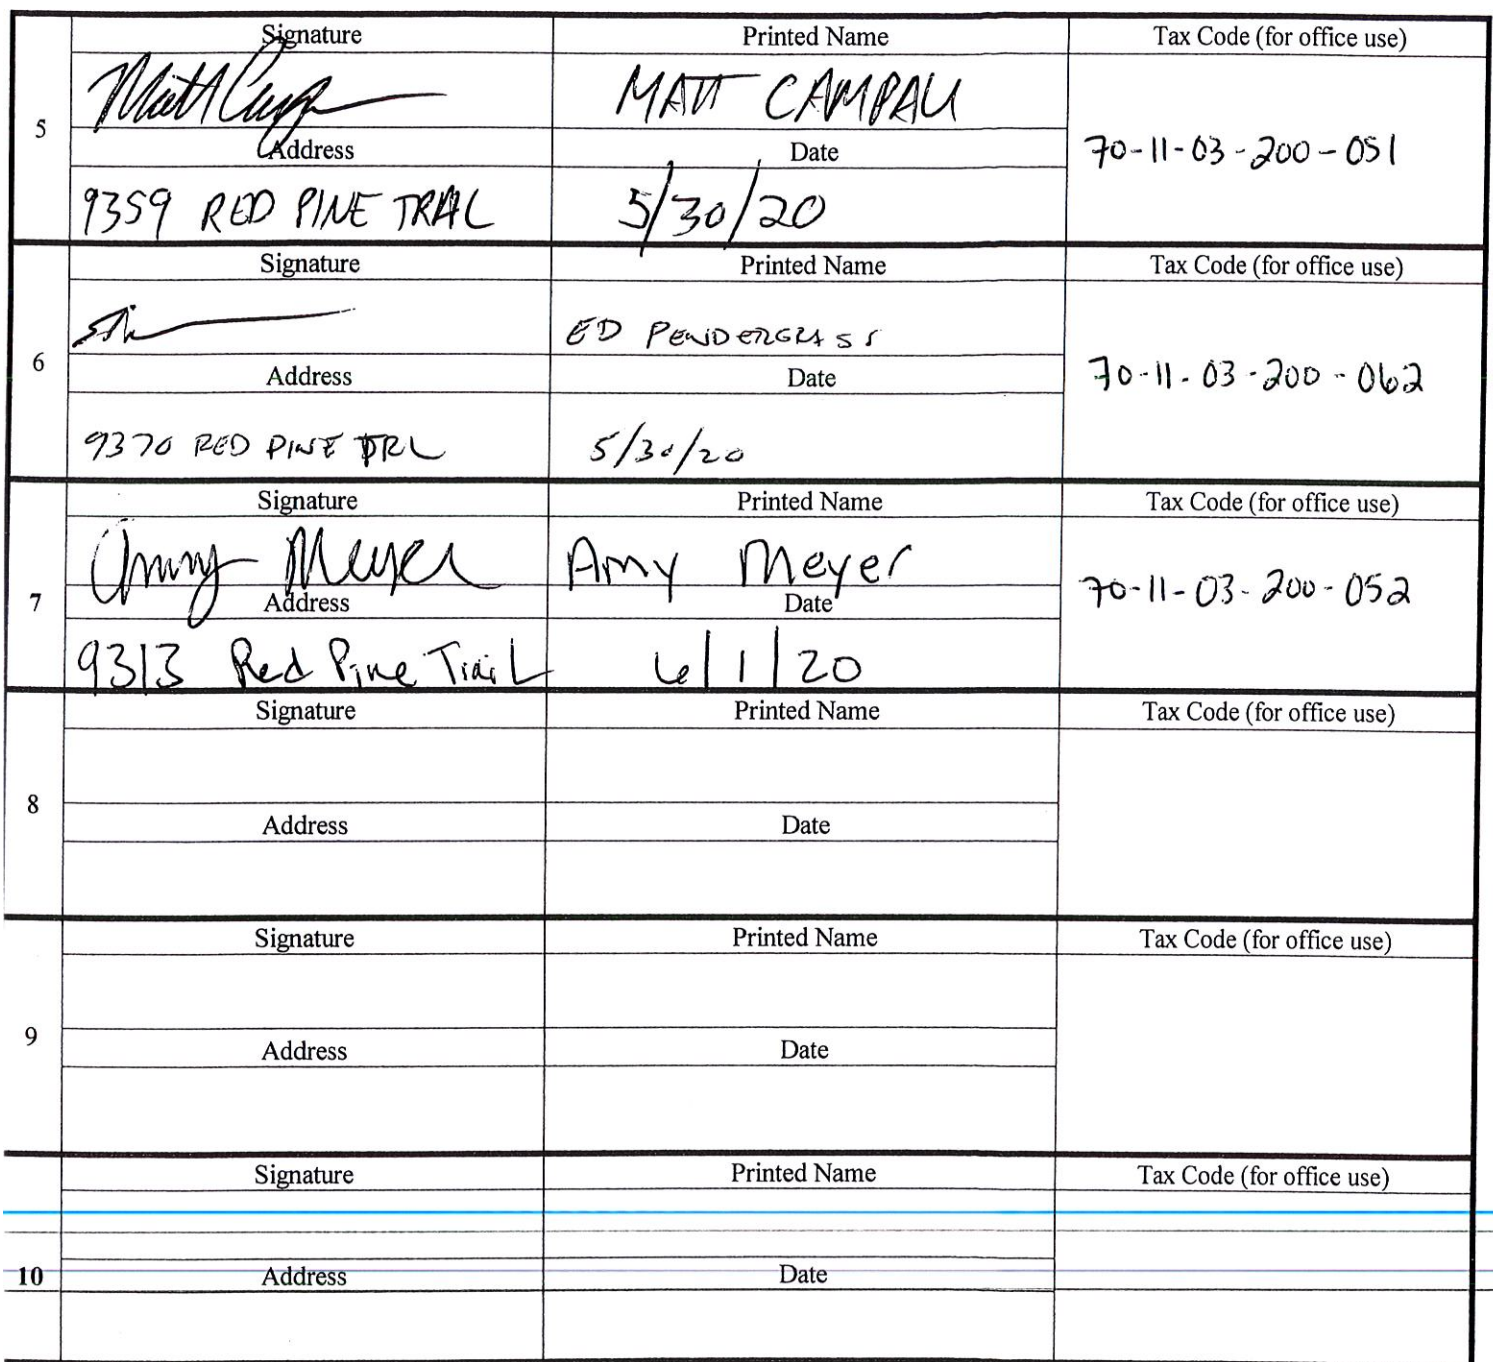 Signature Printed Name Tax Code (for office use)
Matt MATT CAMPAU
5 70-11-03-200-051
Address Date
9359 RED PINE TRAIL 5/30/20
Signature Printed Name Tax Code (for office use)
ED PENDERGRASS
6 70-11-03-200-062
Address Date
9370 RED PINE TRL 5/30/20
Signature Printed Name Tax Code (for office use)
Amy Meyer Amy Meyer
7 70-11-03-200-052
Address Date
9313 Red Pine Trail 6/1/20
Signature Printed Name Tax Code (for office use)
8
Address Date
Signature Printed Name Tax Code (for office use)
9
Address Date
Signature Printed Name Tax Code (for office use)
10 Address Date